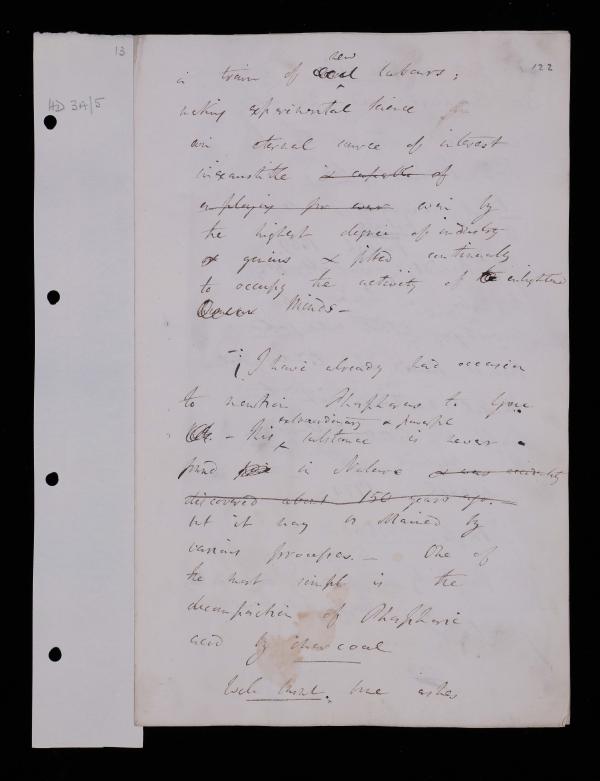 13
122
HD 3A/5
new
a train of labours;
making experimental Science
an eternal source of interest
inexaustible is capable of
employing for ever even by
the highest degree of industry
& genius & fitted continually
to occupy the activity of the enlightened
Minds –
I have already had occasion
to mention Phosphorus to you
extraordinary & powerful
– This substance is never
found in Nature & was accidentally
discovered about 150 years ago. –
but it may be obtained by
various processes. – One of
the most simple is the
decomposition of Phosphoric
acid by charcoal
bone ashes